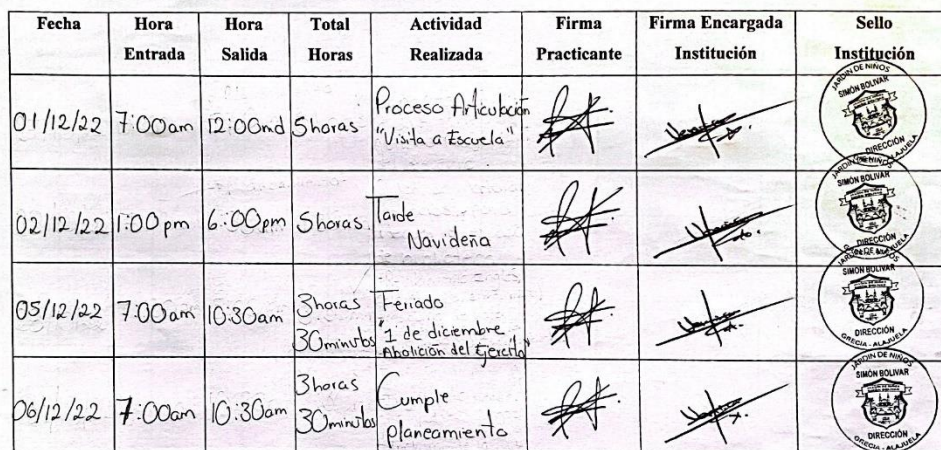 Fecha Hora Entrada Hora Salida Total Horas Actividad Realizada Firma Practicante Firma Encargada Institución Sello Institución
01/12/22 7:00am 12:00md 5horas Proceso Articulación
"Visita a Escuela"
JARDIN DE NIÑOS
SIMÓN BOLIVAR
DIRECCIÓN
ALAJUELA
02/12/22 1:00pm 6:00pm 5horas Tarde
Navideña
JARDIN DE NIÑOS
SIMÓN BOLIVAR
DIRECCIÓN
05/12/22 7:00am 10:30am 3horas Feriado
30minutos "1 de diciembre
Abolición del Ejercito"
JARDIN DE NIÑOS
SIMÓN BOLIVAR
DIRECCIÓN
GRECIA - ALAJUELA
06/12/22 7:00am 10:30am 3horas Cumple
30minutos planeamiento
JARDIN DE NIÑOS
SIMÓN BOLIVAR
DIRECCIÓN
GRECIA - ALAJUELA